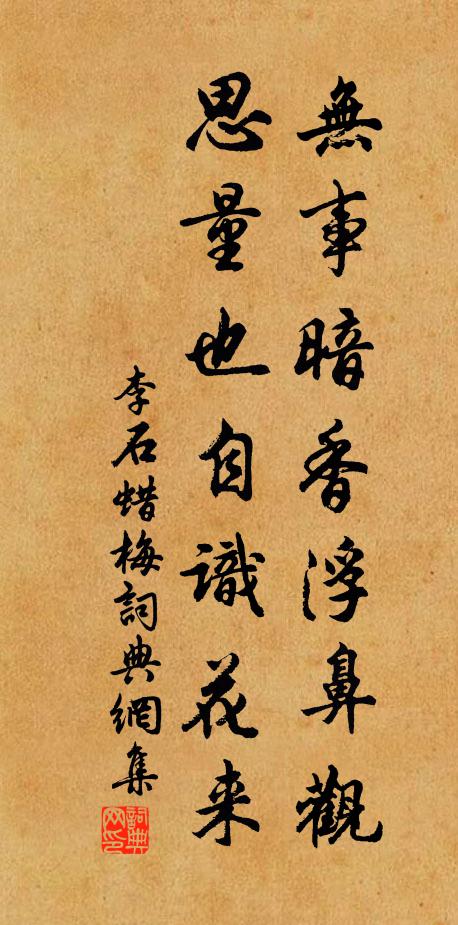 無事暗香浮鼻觀
思量也自識花来
李石蜡梅詞典網集
詞典网印